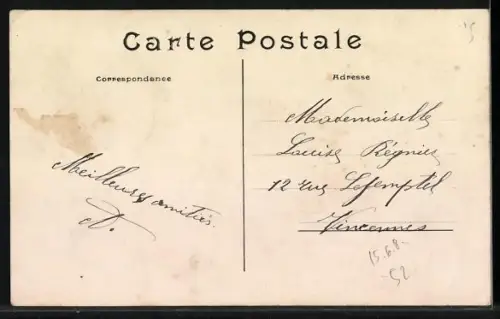 Carte Postale
Correspondance
Adresse
Meilleures amitiés.
Mademoiselle
Louise Régnier
12 rue
Vincennes
15.6.8
52